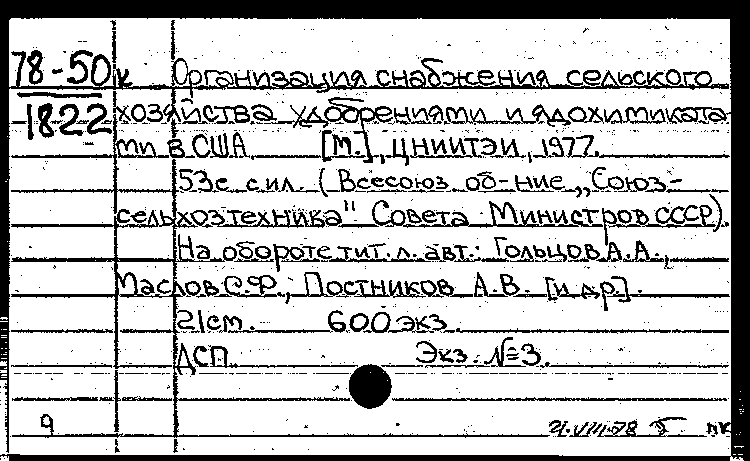 78-50 к Организация снабжения сельского
1822 хозяйства удобрениями и ядохимиката-
ми в США [М.], ЦНИИТЭИ, 1977.
53с с ил. (Всесоюз. об-ние „Союз-
сельхозтехника" Совета Министров СССР).
На обороте тит. л. авт.: Гольцов А.А.,
Маслов С.Ф., Постников А.В. [и др.].
21см. 600 экз.
ДСП. Экз. №3.
9 21.VIII-78 пк